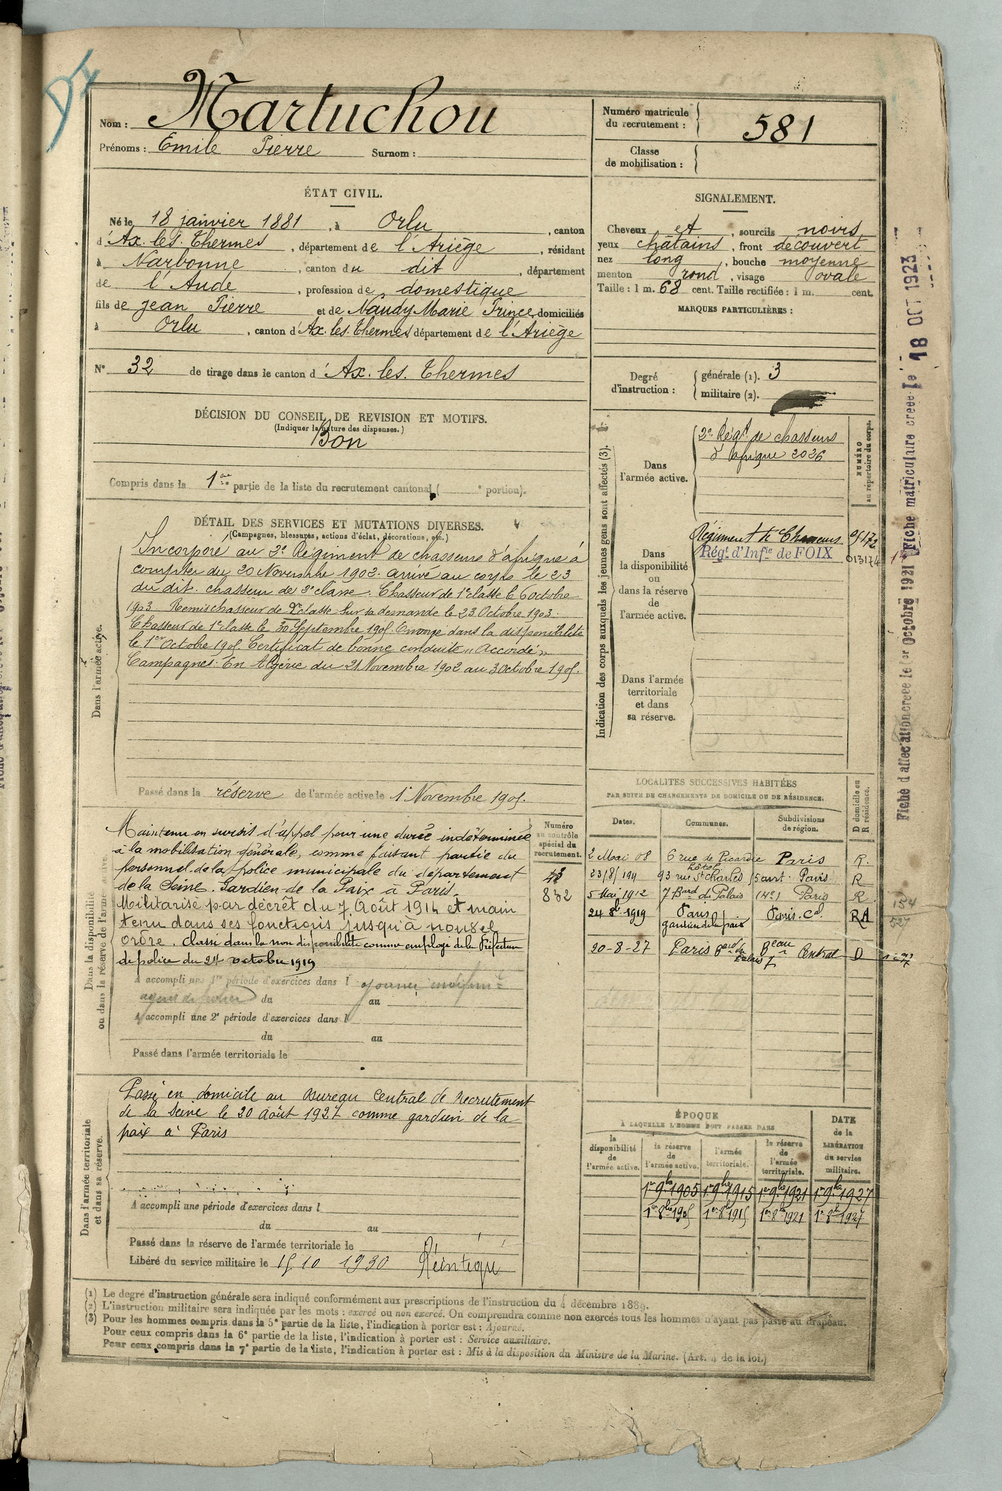 DI
Nom : Martuchou
Prénoms : Emile Pierre Surnom :
Numéro matricule du recrutement : 581
Classe de mobilisation :
ÉTAT CIVIL.
Né le 18 janvier 1881, à Orlu, canton
d'Ax.les.Thermes, département de l'Ariège, résidant
à Narbonne, canton du dit, département
de l'Aude, profession de domestique
fils de Jean Pierre et de Naudy Marie Prince, domiciliés
à Orlu, canton d'Ax.les.Thermes département de l'Ariège
N° 32 de tirage dans le canton d'Ax.les.Thermes
SIGNALEMENT.
Cheveux et, sourcils noirs
yeux chatains, front découvert
nez long, bouche moyenne
menton rond, visage ovale
Taille : 1 m. 68 cent. Taille rectifiée : 1 m. cent.
MARQUES PARTICULIÈRES :
Degré d'instruction : générale (1). 3
militaire (2).
DÉCISION DU CONSEIL DE REVISION ET MOTIFS.
(Indiquer la nature des dispenses.)
Bon
Compris dans la 1re partie de la liste du recrutement cantonal ( e portion).
DÉTAIL DES SERVICES ET MUTATIONS DIVERSES.
(Campagnes, blessures, actions d'éclat, décorations, etc.)
Dans l'armée active.
Incorporé au 2e Régiment de chasseurs d'afrique à
compter du 20 Novembre 1902. arrivé au corps le 23
du dit. chasseur de 2e classe. Chasseur de 1e classe le 6 octobre
1903. Remis chasseur de 2e classe sur sa demande le 23 Octobre 1903.
Chasseur de 1e classe le 30 Septembre 1905. Envoyé dans la disponibilité
le 1er Octobre 1905. Certificat de bonne conduite "Accordé"
Campagnes: En Algérie du 21 Novembre 1902 au 3 Octobre 1905.
Passé dans la réserve de l'armée active le 1er Novembre 1905.
Indication des corps auxquels les jeunes gens sont affectés (3).
NUMÉRO au répertoire du corps.
Dans l'armée active.
2e Régt de chasseurs
d'afrique 2026
Dans la disponibilité ou dans la réserve de l'armée active.
Régt. d'Infie de FOIX
013174
Dans l'armée territoriale et dans sa réserve.
Fiche d'affectation créée le 1er Octobre 1921 Fiche matriculaire créée le 18 OCT 1923
Dans la disponibilité ou dans la réserve de l'armée active.
Maintenu en sursis d'appel pour une durée indéterminée
à la mobilisation générale, comme faisant partie du
personnel de la police municipale du département
de la Seine. Gardien de la Paix à Paris.
Militarisé par décret du 7 Août 1914 et main
tenu dans ses fonctions jusqu'à nouvel
ordre. Classé dans la non disponibilité comme employé de la Préfecture
de police du 24 octobre 1919
A accompli une 1re période d'exercices dans l
du au
A accompli une 2e période d'exercices dans l
du au
Passé dans l'armée territoriale le
Numéro au contrôle spécial du recrutement.
832
LOCALITÉS SUCCESSIVES HABITÉES
PAR SUITE DE CHANGEMENTS DE DOMICILE OU DE RÉSIDENCE.
Dates. Communes. Subdivisions de région. D domicile ou R résidence.
2 Mai 08 6 rue de Picardie Paris R.
93 rue St Charles 15 arrt. Paris R
5 Mai 1912 7 Bard du Palais Paris R
24 8bre 1919 Paris gardien de la paix Paris. Cal RA
20-8-27 Paris Bard du Palais 7 Beau Central D
Dans l'armée territoriale et dans sa réserve.
Passé en domicile au Bureau Central de Recrutement
de la Seine le 20 Août 1927 comme gardien de la
paix à Paris
A accompli une période d'exercices dans l
du au
Passé dans la réserve de l'armée territoriale le
Libéré du service militaire le 15 10 1930
ÉPOQUE
À LAQUELLE L'HOMME DOIT PASSER DANS
la disponibilité de l'armée active. la réserve de l'armée active. l'armée territoriale. la réserve de l'armée territoriale. DATE de la LIBÉRATION du service militaire.
1er 9bre 1905 1er 9bre 1915 1er 9bre 1921 1er 9bre 1927
1er 8bre 1905 1er 8bre 1915 1er 8bre 1921 1er 8bre 1927
(1) Le degré d'instruction générale sera indiqué conformément aux prescriptions de l'instruction du 4 décembre 1889.
(2) L'instruction militaire sera indiquée par les mots : exercé ou non exercé. On comprendra comme non exercés tous les hommes n'ayant pas passé au drapeau.
(3) Pour les hommes compris dans la 5e partie de la liste, l'indication à porter est : Ajourné.
Pour ceux compris dans la 6e partie de la liste, l'indication à porter est : Service auxiliaire.
Pour ceux compris dans la 7e partie de la liste, l'indication à porter est : Mis à la disposition du Ministre de la Marine. (Art. 4 de la loi.)